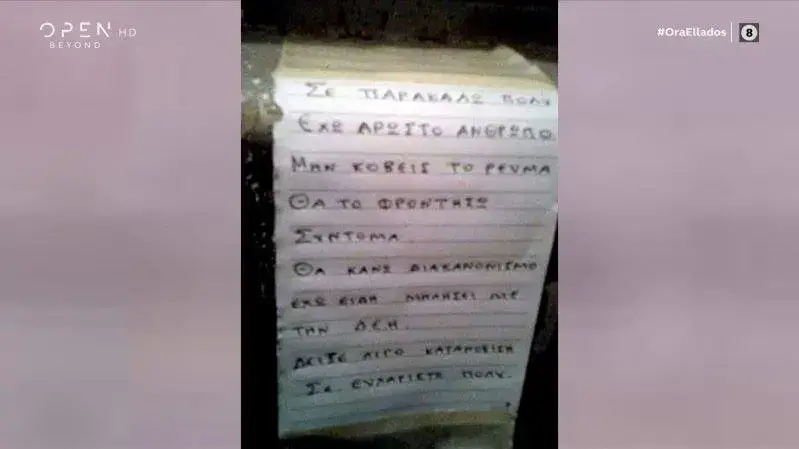 OPEN HD
BEYOND
#OraEllados
8
ΣΕ ΠΑΡΑΚΑΛΩ ΠΟΛΥ
ΕΧΩ ΑΡΩΣΤΟ ΑΝΘΡΩΠΟ
ΜΗΝ ΚΟΒΕΙΣ ΤΟ ΡΕΥΜΑ
ΘΑ ΤΟ ΦΡΟΝΤΗΣΩ
ΣΥΝΤΟΜΑ.
ΘΑ ΚΑΝΩ ΔΙΑΚΑΝΟΝΙΣΜΟ
ΕΧΩ ΕΙΔΗ ΜΙΛΗΣΕΙ ΜΕ
ΤΗΝ Δ.Ε.Η.
ΔΕΙΞΕ ΛΙΓΟ ΚΑΤΑΝΟΗΣΗ
ΣΕ ΕΥΧΑΡΙΣΤΩ ΠΟΛΥ.